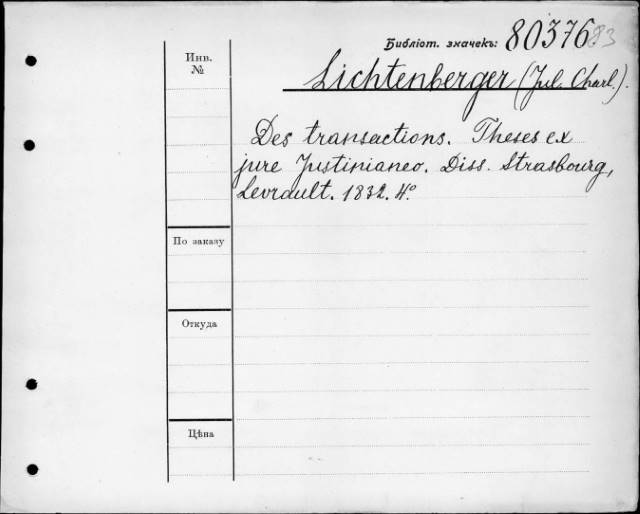 Библіот. значекъ: 80376 83
Инв.
№
Lichtenberger (Jul. Charl.).
Des transactions. Theses ex
jure Justinianeo. Diss. Strasbourg,
Levrault. 1832. 4º.
По заказу
Откуда
Цѣна